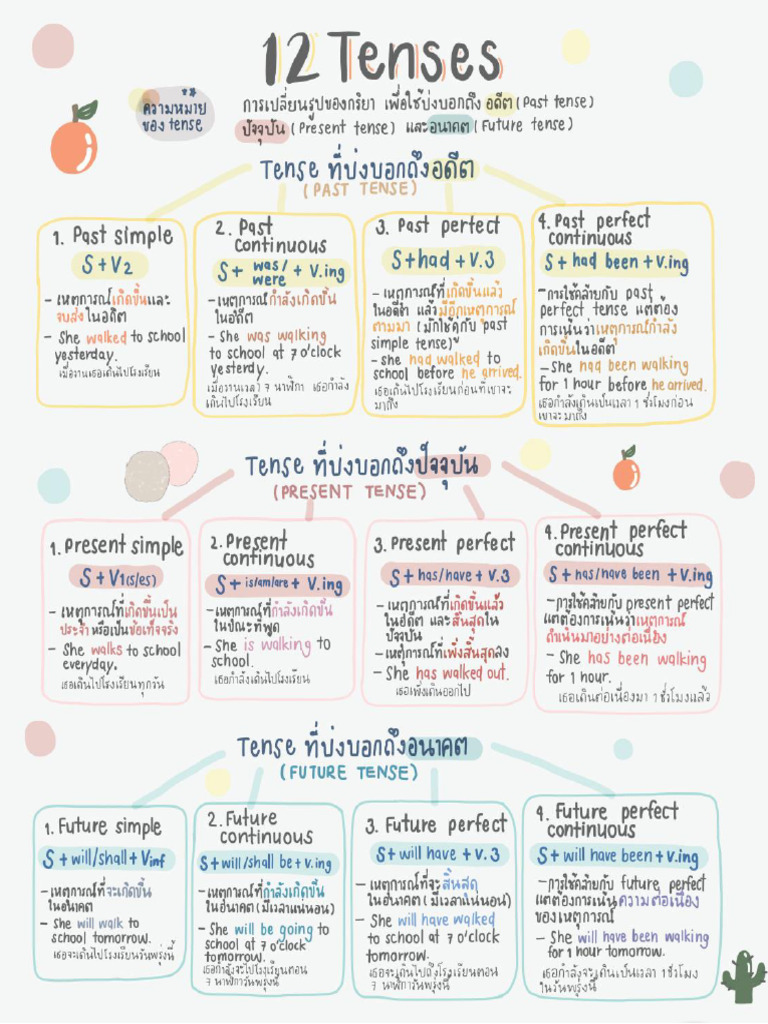 12 Tenses
ความหมาย
ของ tense
การเปลี่ยนรูปของกริยา เพื่อใช้บ่งบอกถึง อดีต (Past tense)
ปัจจุบัน (Present tense) และอนาคต (Future tense)
Tense ที่บ่งบอกถึงอดีต
(PAST TENSE)
1. Past simple
S+V2
- เหตุการณ์เกิดขึ้นและ
จบลงในอดีต
- She walked to school
yesterday.
เมื่อวานเธอเดินไปโรงเรียน
2. Past
continuous
S+ was/ were + V.ing
- เหตุการณ์กำลังเกิดขึ้น
ในอดีต
- She was walking
to school at 7 o'clock
yesterdy.
เมื่อวานเวลา 7 นาฬิกา เธอกำลัง
เดินไปโรงเรียน
3. Past perfect
S+had+V.3
- เหตุการณ์ที่เกิดขึ้นแล้ว
ในอดีต แล้วมีอีกเหตุการณ์
ตามมา (มักใช้คู่กับ "past
simple tense)"
- she had walked to
school before he arrived.
เธอเดินไปโรงเรียนก่อนที่เขาจะ
มาถึง
4. Past perfect
continuous
S+ had been +V.ing
- การใช้คล้ายกับ past
perfect tense แต่ต้อง
การเน้นว่าเหตุการณ์กำลัง
เกิดขึ้นในอดีต
- She had been walking
for 1 hour before he arrived.
เธอกำลังเดินเป็นเวลา 1 ชั่วโมงก่อน
เขาจะมาถึง
Tense ที่บ่งบอกถึงปัจจุบัน
(PRESENT TENSE)
1. Present simple
S+V1(s/es)
- เหตุการณ์ที่เกิดขึ้นเป็น
ประจำ หรือเป็นข้อเท็จจริง
- She walks to school
everyday.
เธอเดินไปโรงเรียนทุกวัน
2. Present
continuous
S+ is/am/are + V.ing
- เหตุการณ์ที่กำลังเกิดขึ้น
ในขณะที่พูด
- She is walking to
school.
เธอกำลังเดินไปโรงเรียน
3. Present perfect
S+ has/have + V.3
- เหตุการณ์ที่เกิดขึ้นแล้ว
ในอดีต และสิ้นสุดใน
ปัจจุบัน
- เหตุการณ์ที่เพิ่งสิ้นสุดลง
- She has walked out.
เธอเพิ่งเดินออกไป
4. Present perfect
continuous
S+ has/have been + V.ing
- การใช้คล้ายกับ present perfect
แต่ต้องการเน้นว่าเหตุการณ์
ดำเนินมาอย่างต่อเนื่อง
- She has been walking
for 1 hour.
เธอเดินต่อเนื่องมา 1 ชั่วโมงแล้ว
Tense ที่บ่งบอกถึงอนาคต
(FUTURE TENSE)
1. Future simple
S+ will/shall + Vinf
- เหตุการณ์ที่จะเกิดขึ้น
ในอนาคต
- She will walk to
school tomorrow.
เธอจะเดินไปโรงเรียนวันพรุ่งนี้
2. Future
continuous
S+will/shall be+V.ing
- เหตุการณ์ที่กำลังเกิดขึ้น
ในอนาคต (มีเวลาแน่นอน)
- She will be going to
school at 7 o'clock
tomorrow.
เธอกำลังจะไปโรงเรียนตอน
7 นาฬิกาวันพรุ่งนี้
3. Future perfect
S+ will have +V.3
- เหตุการณ์ที่จะสิ้นสุด
ในอนาคต (มีเวลาแน่นอน)
- She will have walked
to school at 7 o'clock
tomorrow.
เธอจะเดินไปถึงโรงเรียนตอน
7 นาฬิกาวันพรุ่งนี้
4. Future perfect
continuous
S+ will have been + V.ing
- การใช้คล้ายกับ future perfect
แต่ต้องการเน้นความต่อเนื่อง
ของเหตุการณ์
- She will have been walking
for 1 hour tomorrow.
เธอกำลังจะเดินเป็นเวลา 1 ชั่วโมง
ในวันพรุ่งนี้